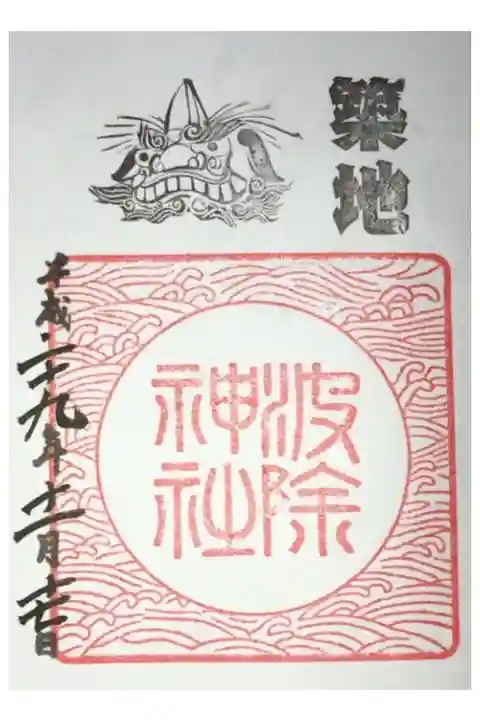 築地
波除
神社
平成二十九年十一月十七日